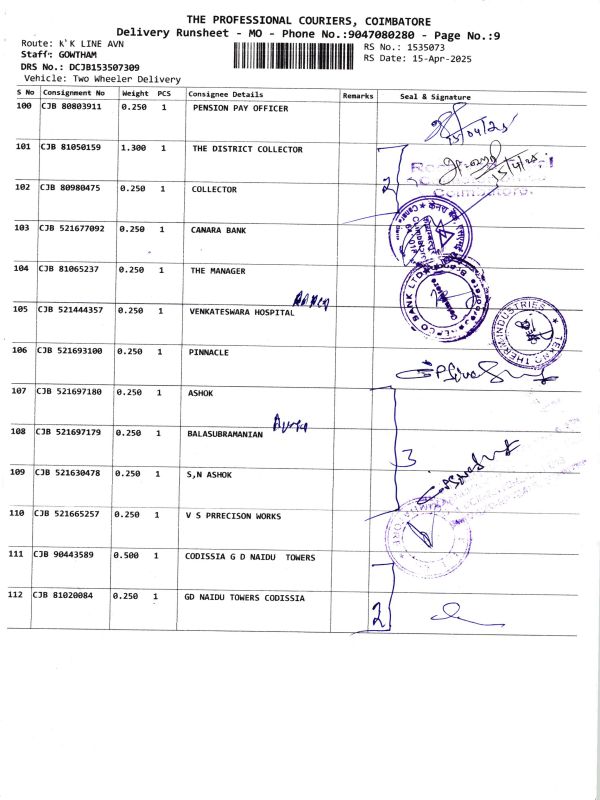 THE PROFESSIONAL COURIERS, COIMBATORE
Delivery Runsheet - MO - Phone No.:9047080280 - Page No.:9
Route: K`K LINE AVN
RS No.: 1535073
Staff: GOWTHAM
RS Date: 15-Apr-2025
DRS No.: DCJB153507309
Vehicle: Two Wheeler Delivery
S No Consignment No Weight PCS Consignee Details Remarks Seal & Signature
100 CJB 80803911 0.250 1 PENSION PAY OFFICER
15/04/25
101 CJB 81050159 1.300 1 THE DISTRICT COLLECTOR
15/4/25
2
Coimbatore.
102 CJB 80980475 0.250 1 COLLECTOR
103 CJB 521677092 0.250 1 CANARA BANK
104 CJB 81065237 0.250 1 THE MANAGER
105 CJB 521444357 0.250 1 VENKATESWARA HOSPITAL
TEKNO THERM INDUSTRIES
106 CJB 521693100 0.250 1 PINNACLE
107 CJB 521697180 0.250 1 ASHOK
108 CJB 521697179 0.250 1 BALASUBRAMANIAN
3
109 CJB 521630478 0.250 1 S,N ASHOK
110 CJB 521665257 0.250 1 V S PRRECISON WORKS
111 CJB 90443589 0.500 1 CODISSIA G D NAIDU TOWERS
112 CJB 81020084 0.250 1 GD NAIDU TOWERS CODISSIA
2